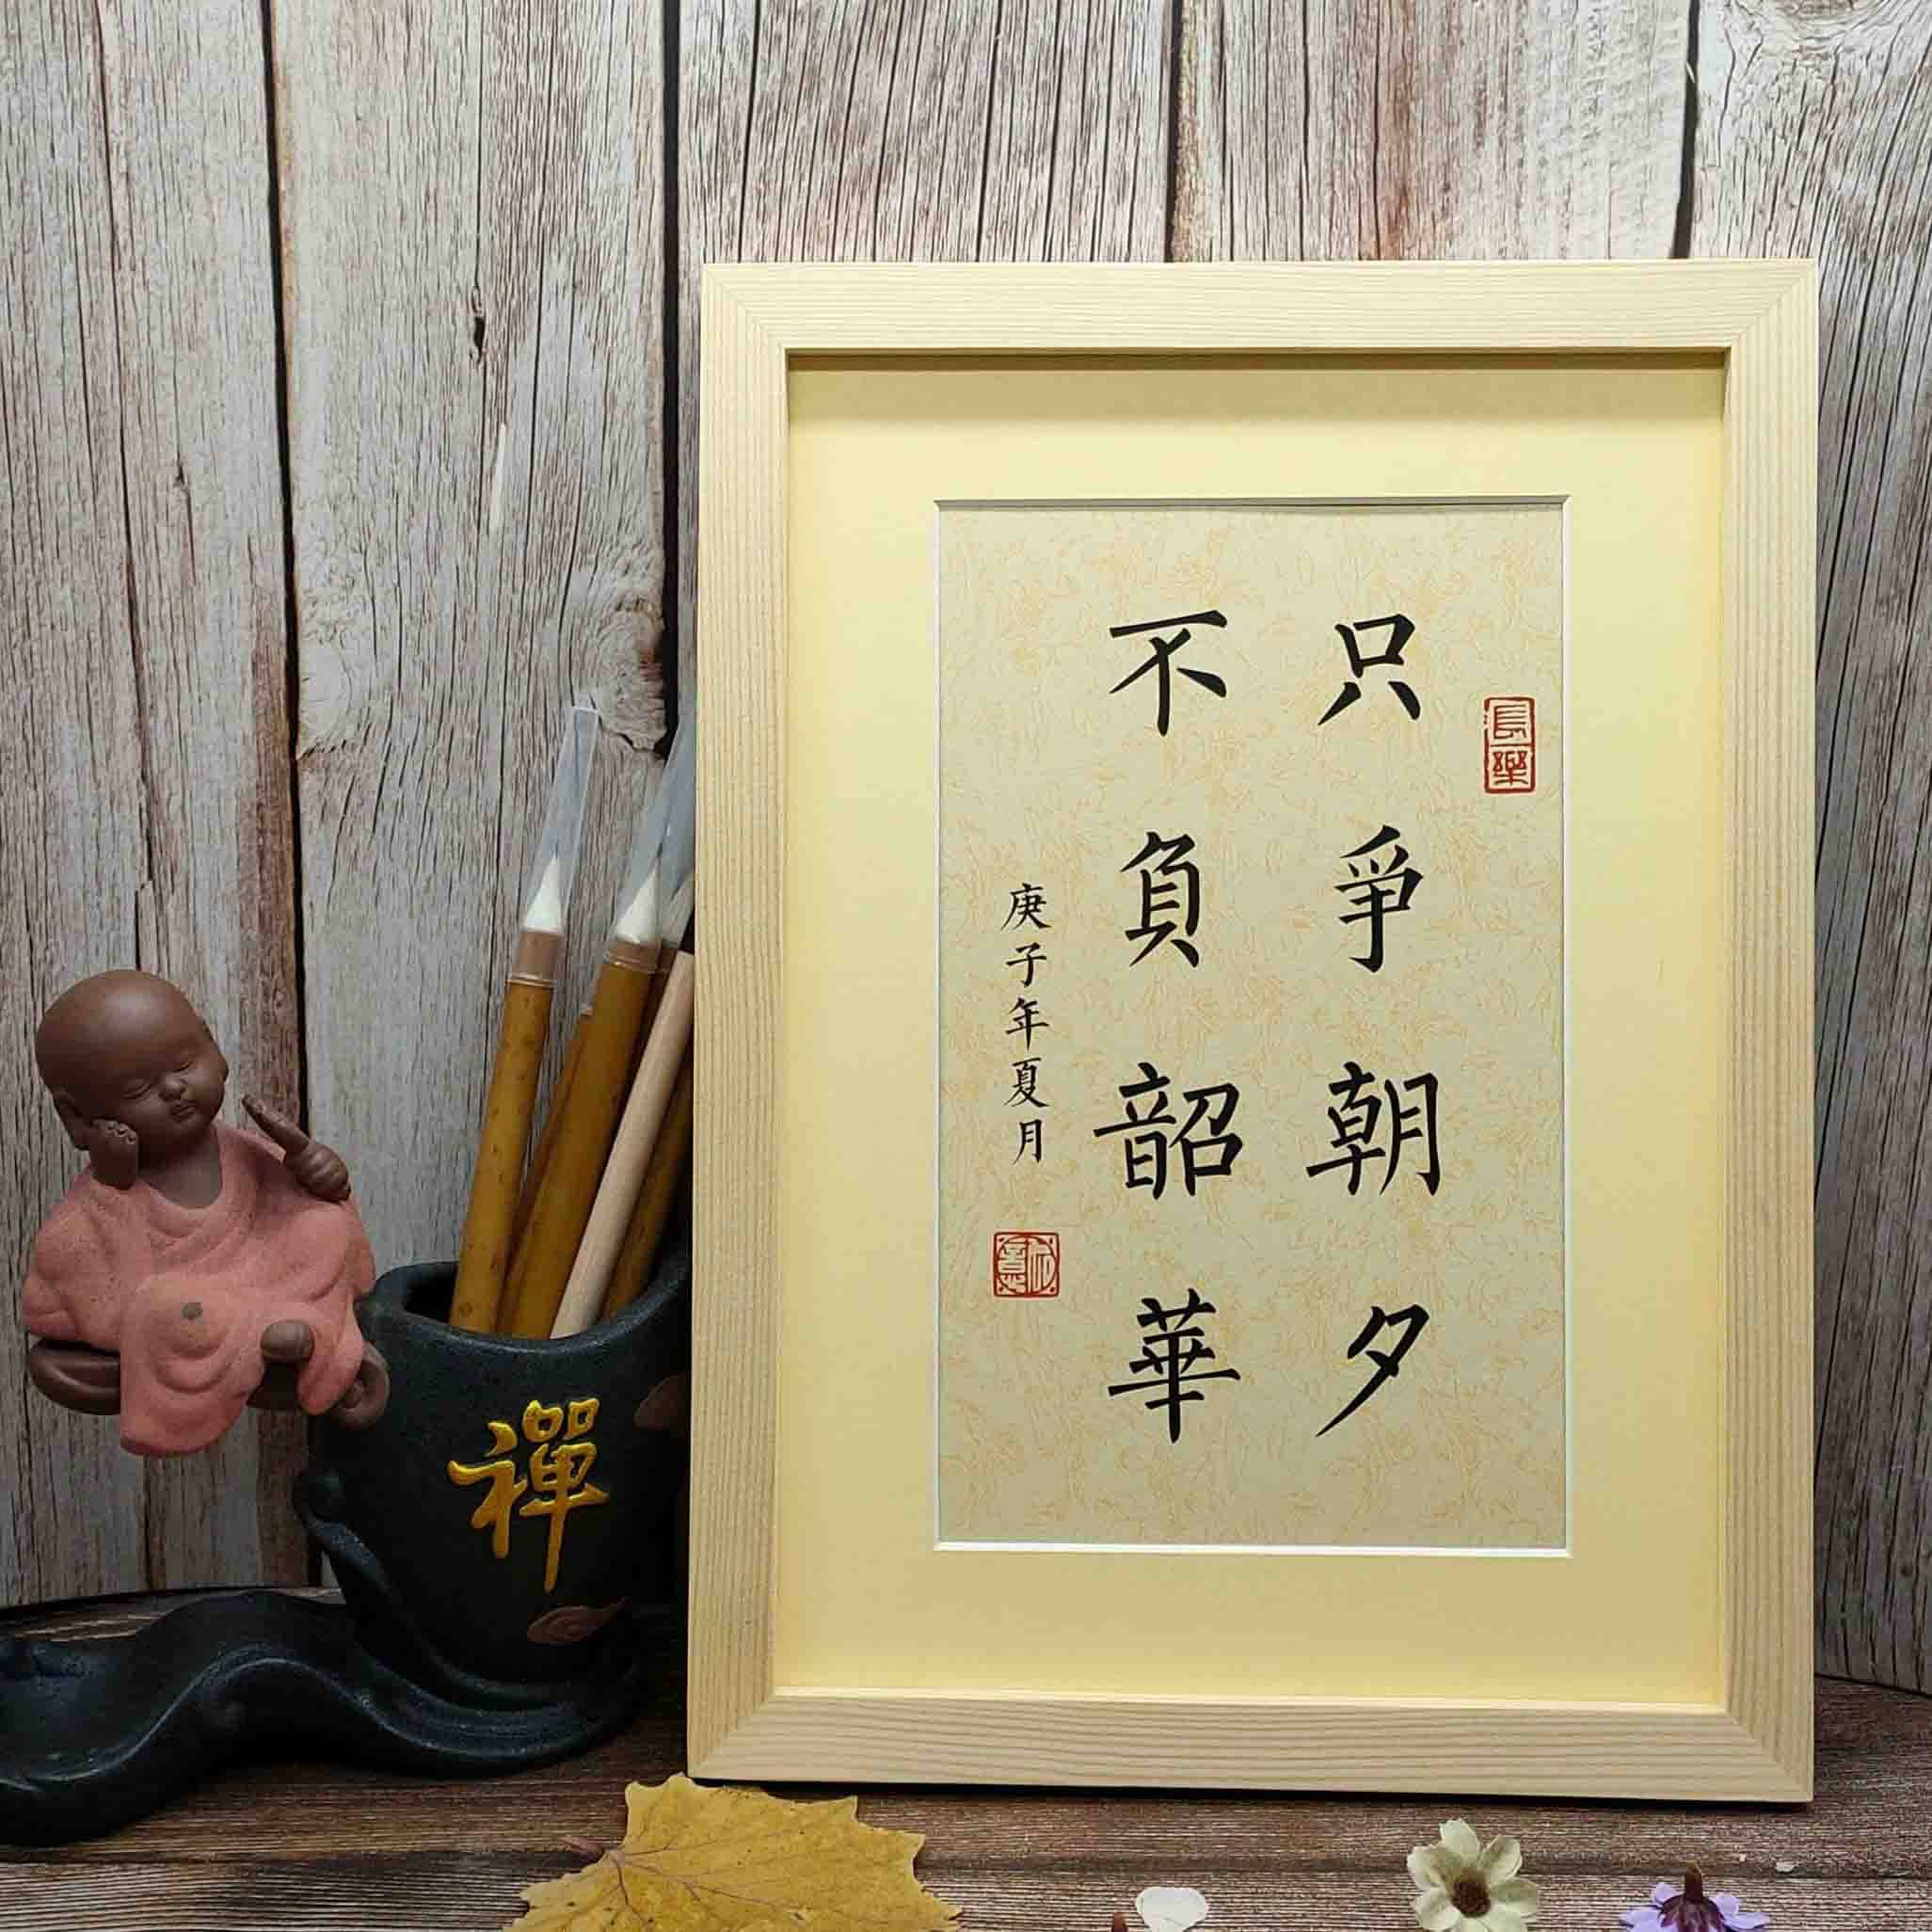 只爭朝夕
不負韶華
庚子年夏月
長樂
禪